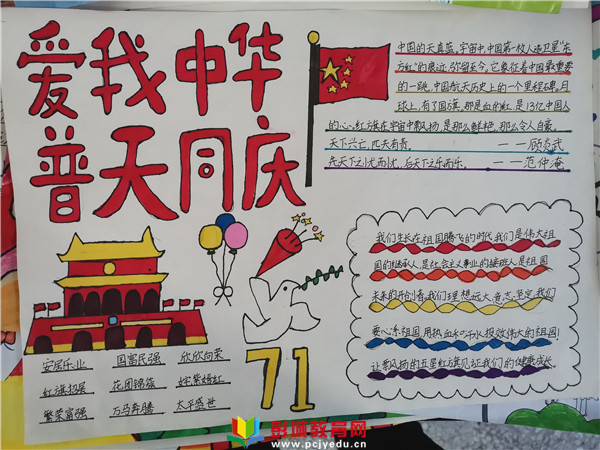 爱我中华
普天同庆
中国的天真蓝，宇宙中，中国第一枚人造卫星"东
方红"的痕迹，弥留至今。它象征着中国最重要
的一跳，中国航天历史上的一个里程碑。月
球上，有了国旗，那是血的红，是13亿中国人
的心。红旗在宇宙中飘扬，是那么鲜艳，那么令人自豪。
天下兴亡，匹夫有责。——顾炎武
先天下之忧而忧，后天下之乐而乐。——范仲淹
我们生长在祖国腾飞的时代，我们是伟大祖
国的继承人，是社会主义事业的接班人，是祖国
未来的开创者，我们理想远大，意志坚定，我们
要心系祖国，用热血和汗水投效伟大的祖国，
让飘扬的五星红旗见证我们的健康成长。
安居乐业 国富民强 欣欣向荣
红旗招展 花团锦簇 姹紫嫣红
繁荣富强 万马奔腾 太平盛世
71
彭城教育网
www.pcjyedu.cn